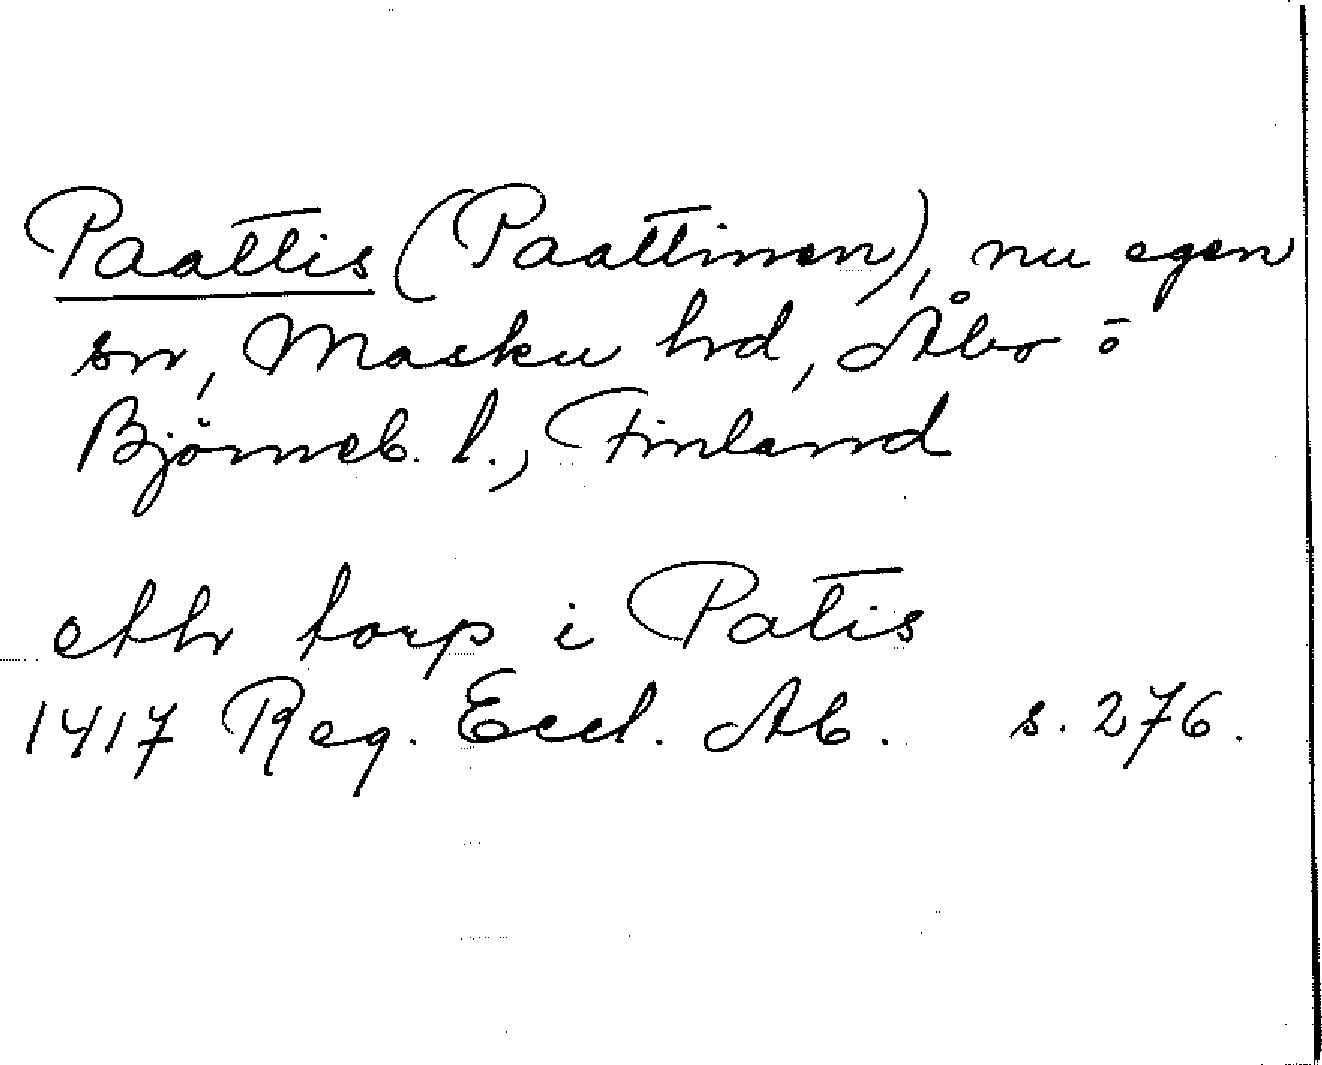 Paattis (Paattinen), nu egen
sn, Masku hd, Åbo o
Björneb. l., Finland
eth torp i Patis
1417 Reg. Eccl. Ab. s. 276.